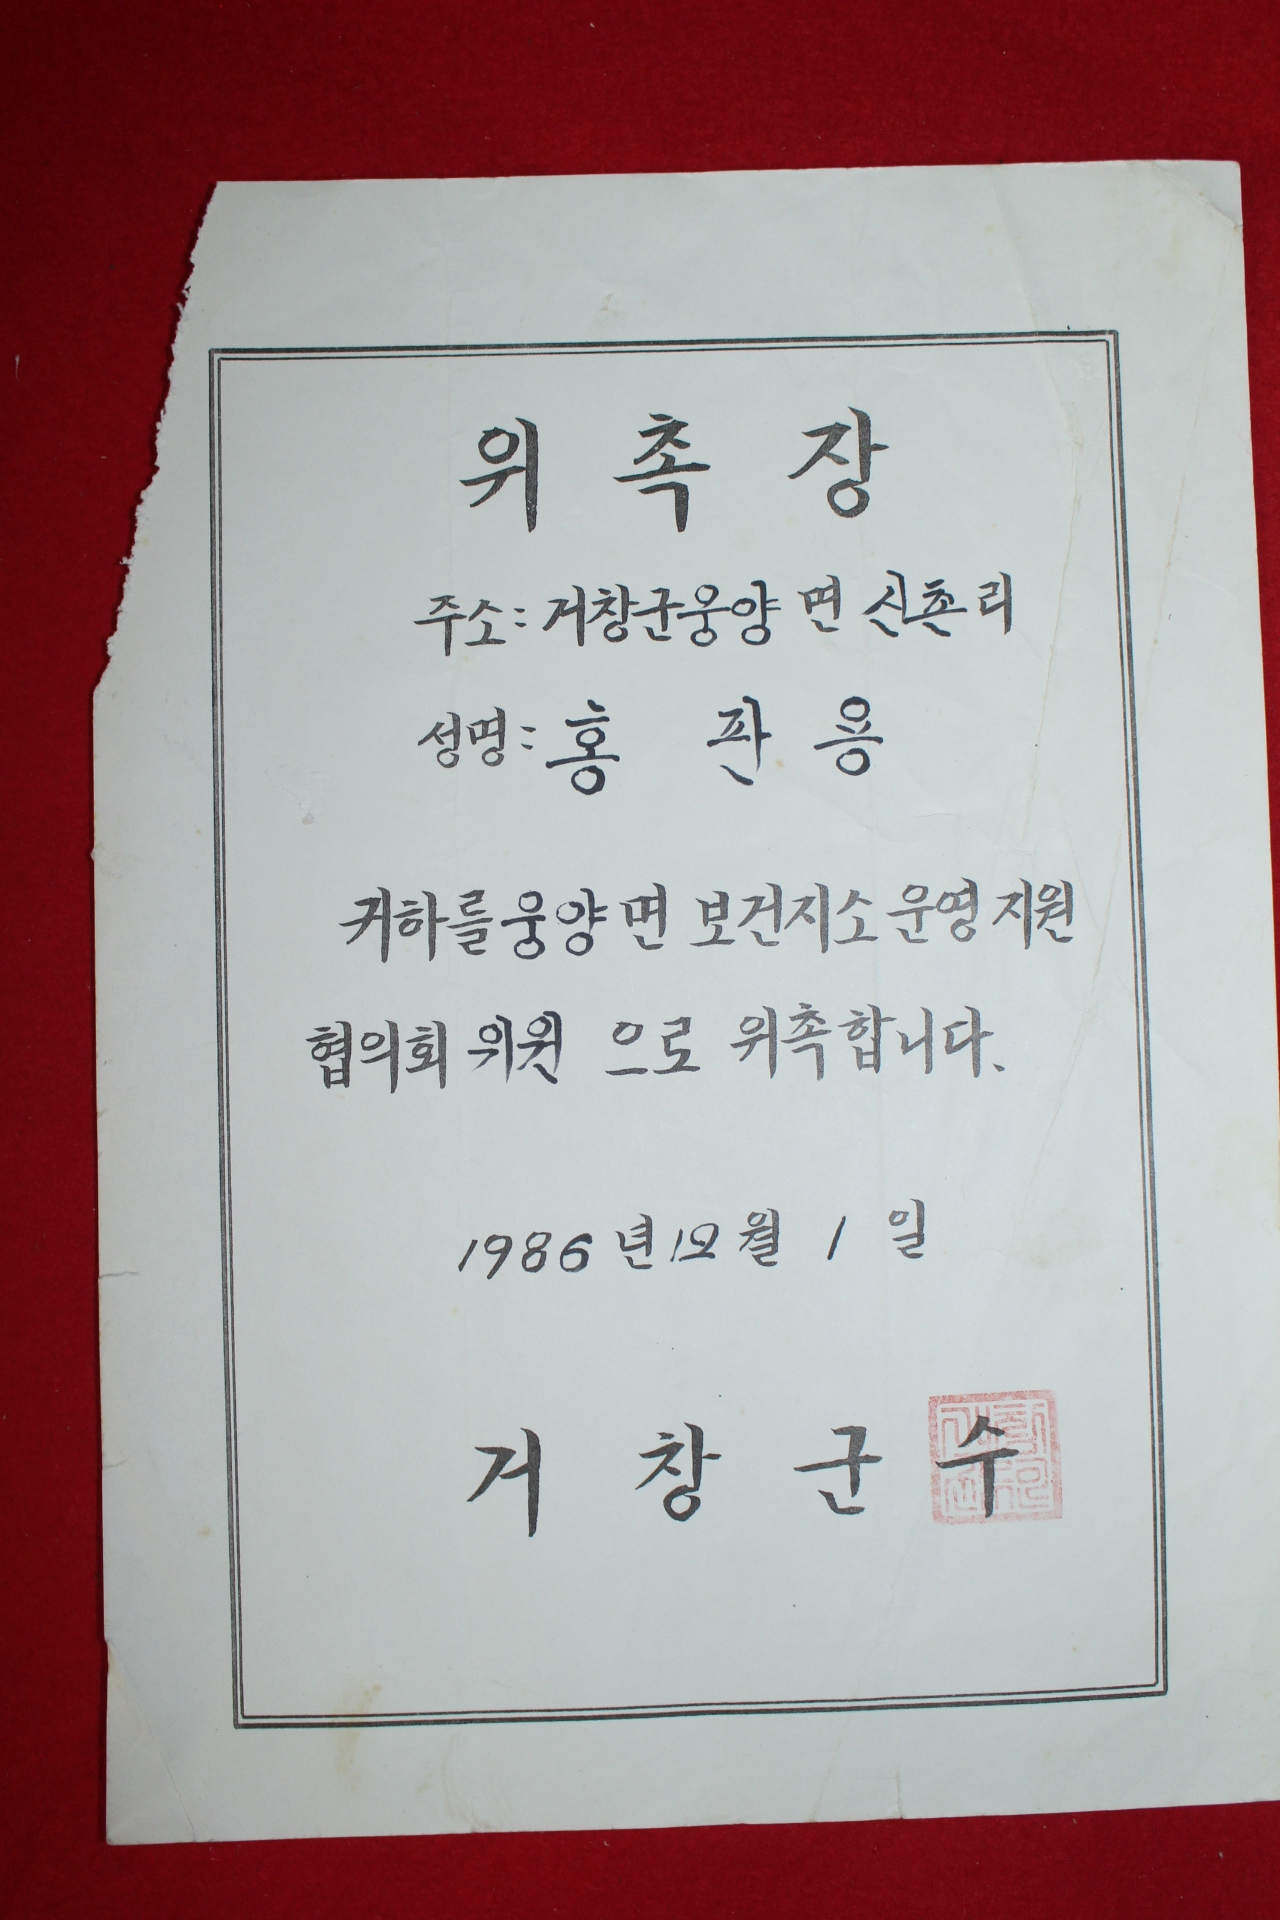 위촉장
주소: 거창군웅양면 신촌리
성명: 홍판용
귀하를웅양면 보건지소운영지원
협의회 위원 으로 위촉합니다.
1986년 12월 1일
거창군수